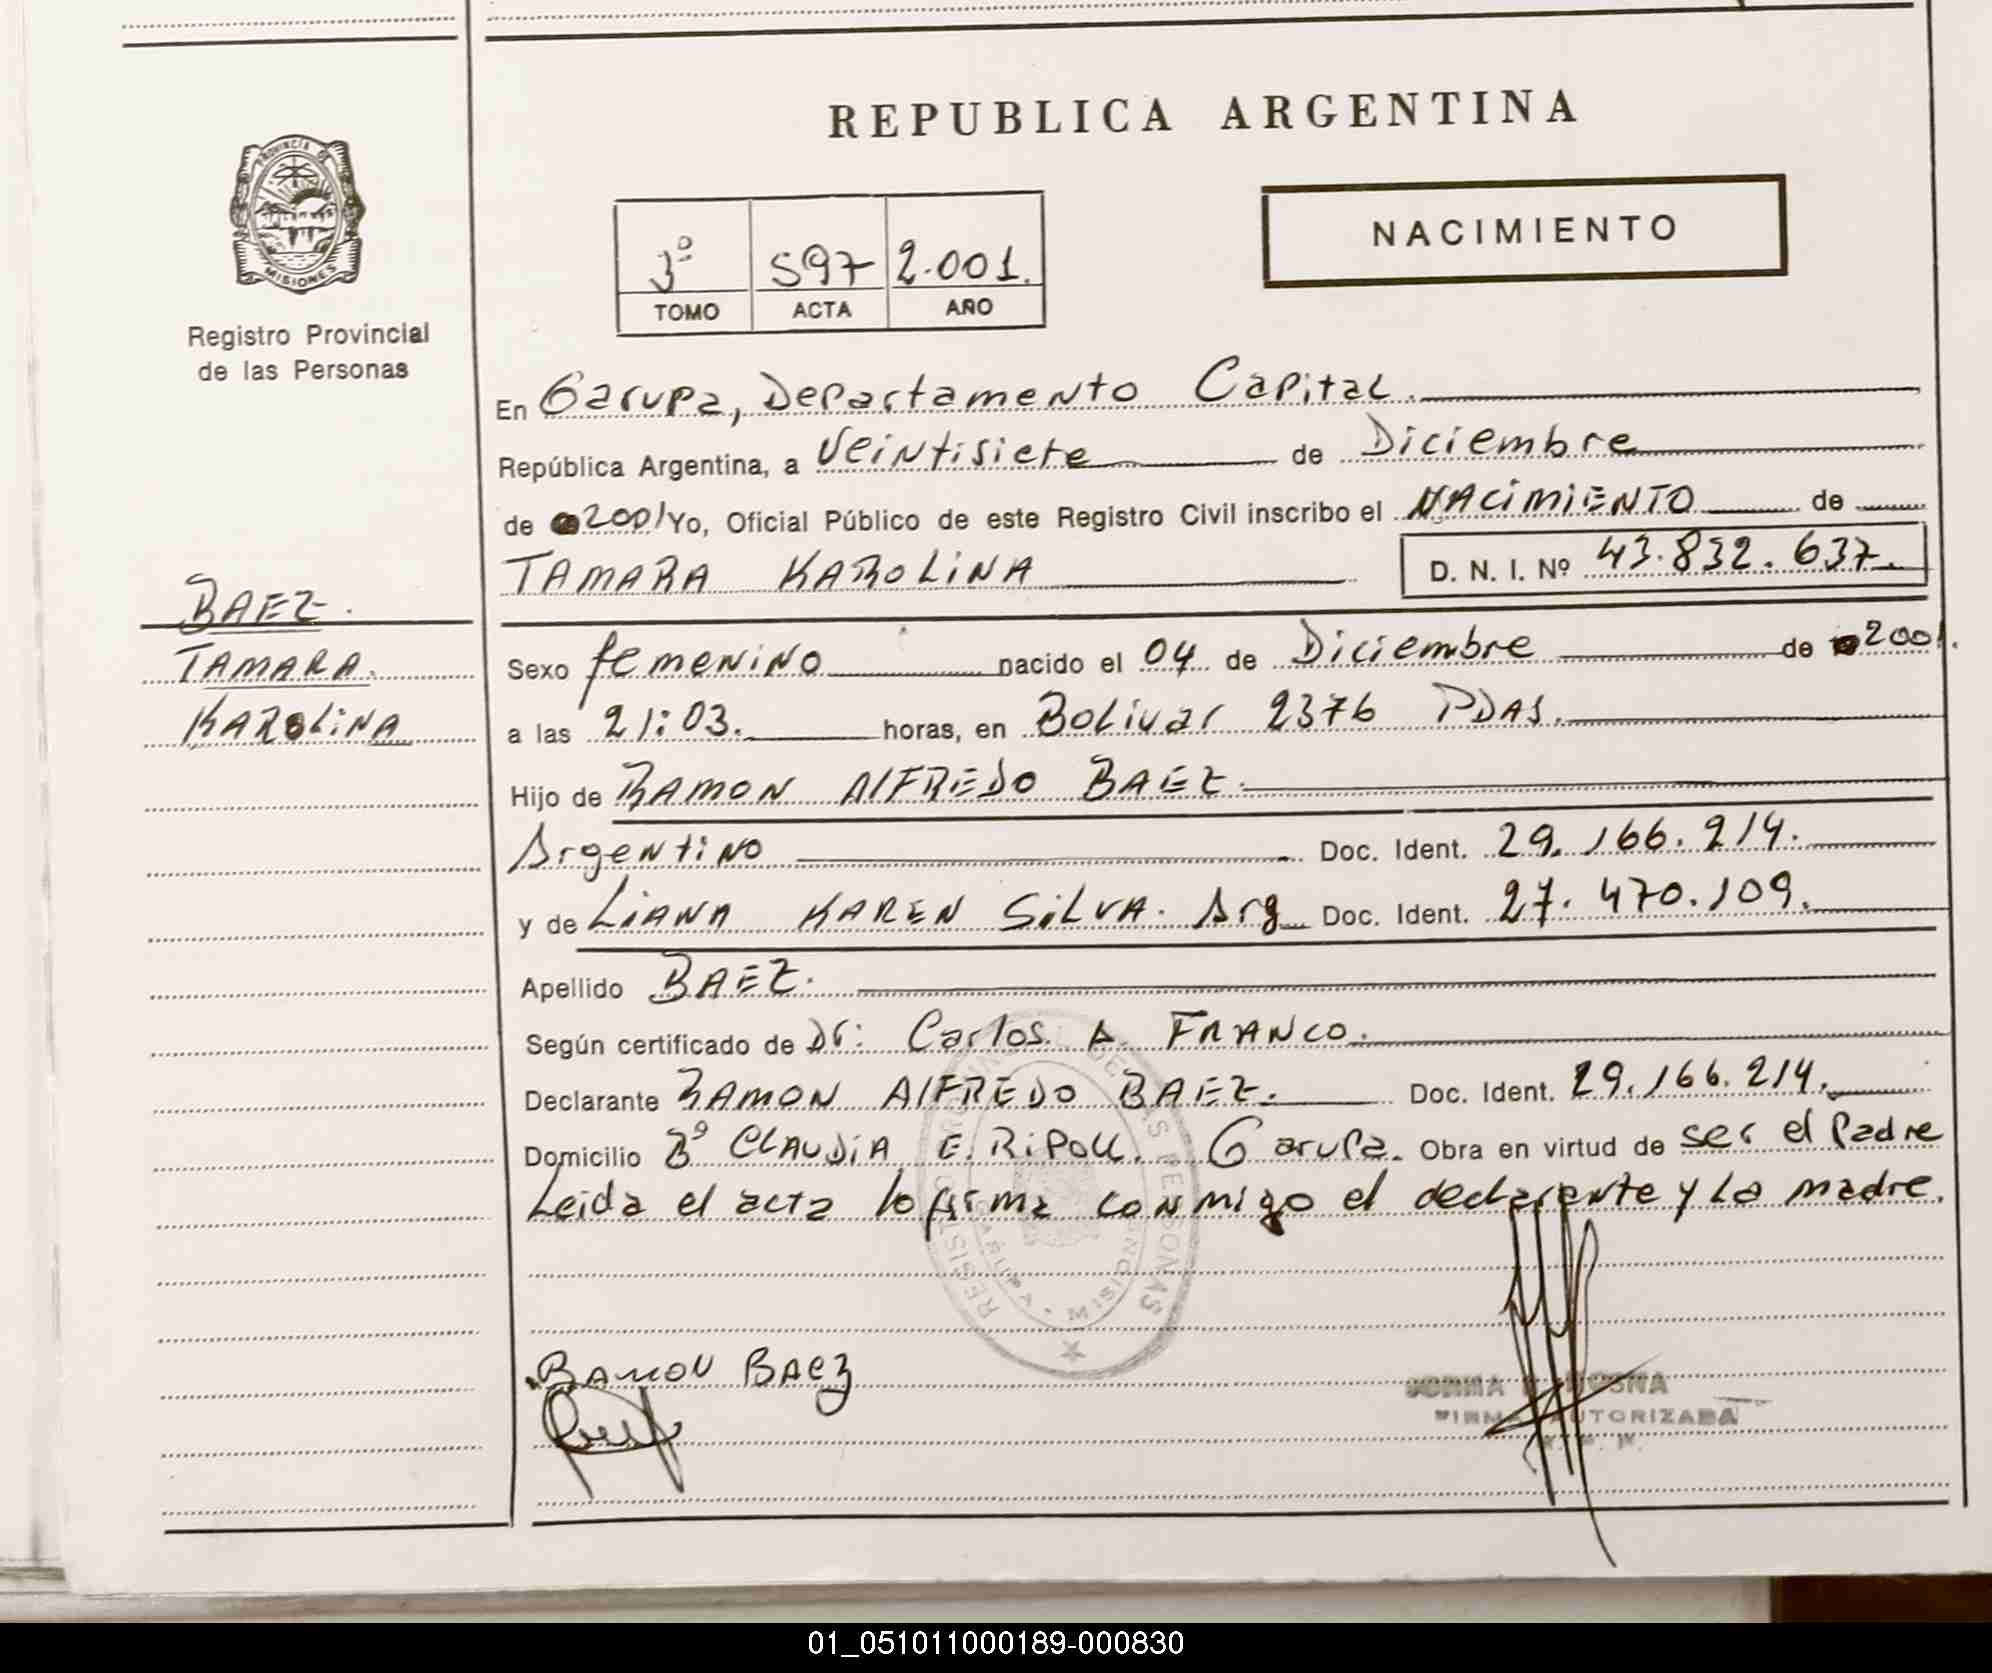 REPUBLICA ARGENTINA
PROVINCIA DE
MISIONES
Registro Provincial
de las Personas
3º 597 2.001.
TOMO ACTA AÑO
NACIMIENTO
En Garupa, Departamento Capital.
República Argentina, a Veintisiete de Diciembre
de 2001 Yo, Oficial Público de este Registro Civil inscribo el NACIMIENTO de
TAMARA KAROLINA D. N. I. Nº 43.832.637.
BAEZ.
TAMARA.
KAROLINA
Sexo femenino nacido el 04 de Diciembre de 2001.
a las 21:03. horas, en Bolivar 2376 PDAS.
Hijo de RAMON AlFREDO BAEZ.
Argentino Doc. Ident. 29.166.214.
y de LIANA KAREN SILVA. Arg Doc. Ident. 27.470.109.
Apellido BAEZ.
Según certificado de Dr: Carlos A. FRANCO.
Declarante RAMON AlFREDO BAEZ. Doc. Ident. 29.166.214.
Domicilio Bº CLAUDIA E. RIPOLL. Garupa. Obra en virtud de ser el Padre
Leida el acta lo firma conmigo el declarante y La madre.
REGISTRO PROVINCIAL DE LAS PERSONAS
GARUPA • MISIONES
RAMON BAEZ
FIRMA AUTORIZADA
01_051011000189-000830